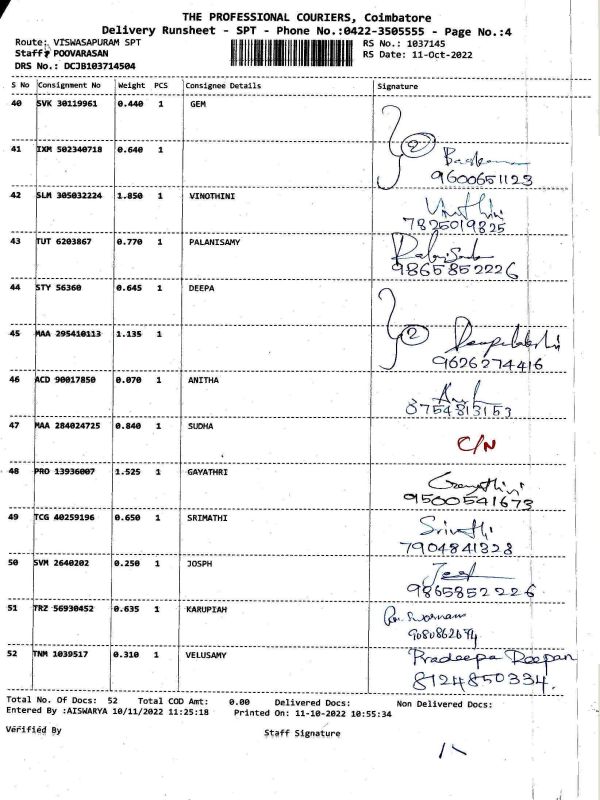 THE PROFESSIONAL COURIERS, Coimbatore
Delivery Runsheet - SPT - Phone No.:0422-3505555 - Page No.:4
Route: VISWASAPURAM SPT RS No.: 1037145
Staff: POOVARASAN RS Date: 11-Oct-2022
DRS No.: DCJB103714504
S No Consignment No Weight PCS Consignee Details Signature
40 SVK 30119961 0.440 1 GEM
41 IXM 502340718 0.640 1 2
9600651123
42 SLM 305032224 1.850 1 VINOTHINI Vinothini
7825019825
43 TUT 6203867 0.770 1 PALANISAMY
9865852226
44 STY 56360 0.645 1 DEEPA
45 MAA 295410113 1.135 1 2
9626274416
46 ACD 90017850 0.070 1 ANITHA
8754813153
47 MAA 284024725 0.840 1 SUDHA C/N
48 PRO 13936007 1.525 1 GAYATHRI Gayathiri
9500541673
49 TCG 40259196 0.650 1 SRIMATHI
7904841328
50 SVM 2640202 0.250 1 JOSPH
9865852226
51 TRZ 56930452 0.635 1 KARUPIAH
52 TNM 1039517 0.310 1 VELUSAMY Pradeepa Deepan
8124850334.
Total No. Of Docs: 52 Total COD Amt: 0.00 Delivered Docs: Non Delivered Docs:
Entered By :AISWARYA 10/11/2022 11:25:18 Printed On: 11-10-2022 10:55:34
Verified By Staff Signature